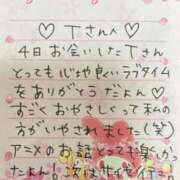 ♡Tさんへ♡
4日お会いしたTさん
とっても心は良いラブタイム
をありがとうだよん♡
すごくおやさしくって私の
方がいやされました(笑)
アニメのお話とっても楽か
ったよん!次は